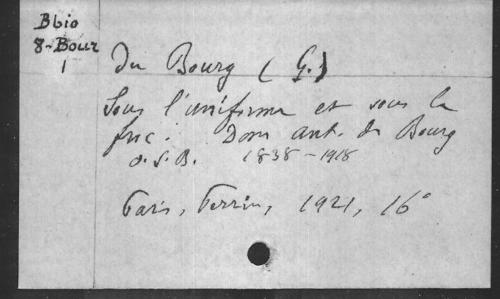 Bbio
8-Bour
1
Du Bourg (G.)
Sous l'uniforme et sous le
froc. Dom Ant. du Bourg
o.S.B. 1838-1918
Paris, Perrin, 1921, 16°